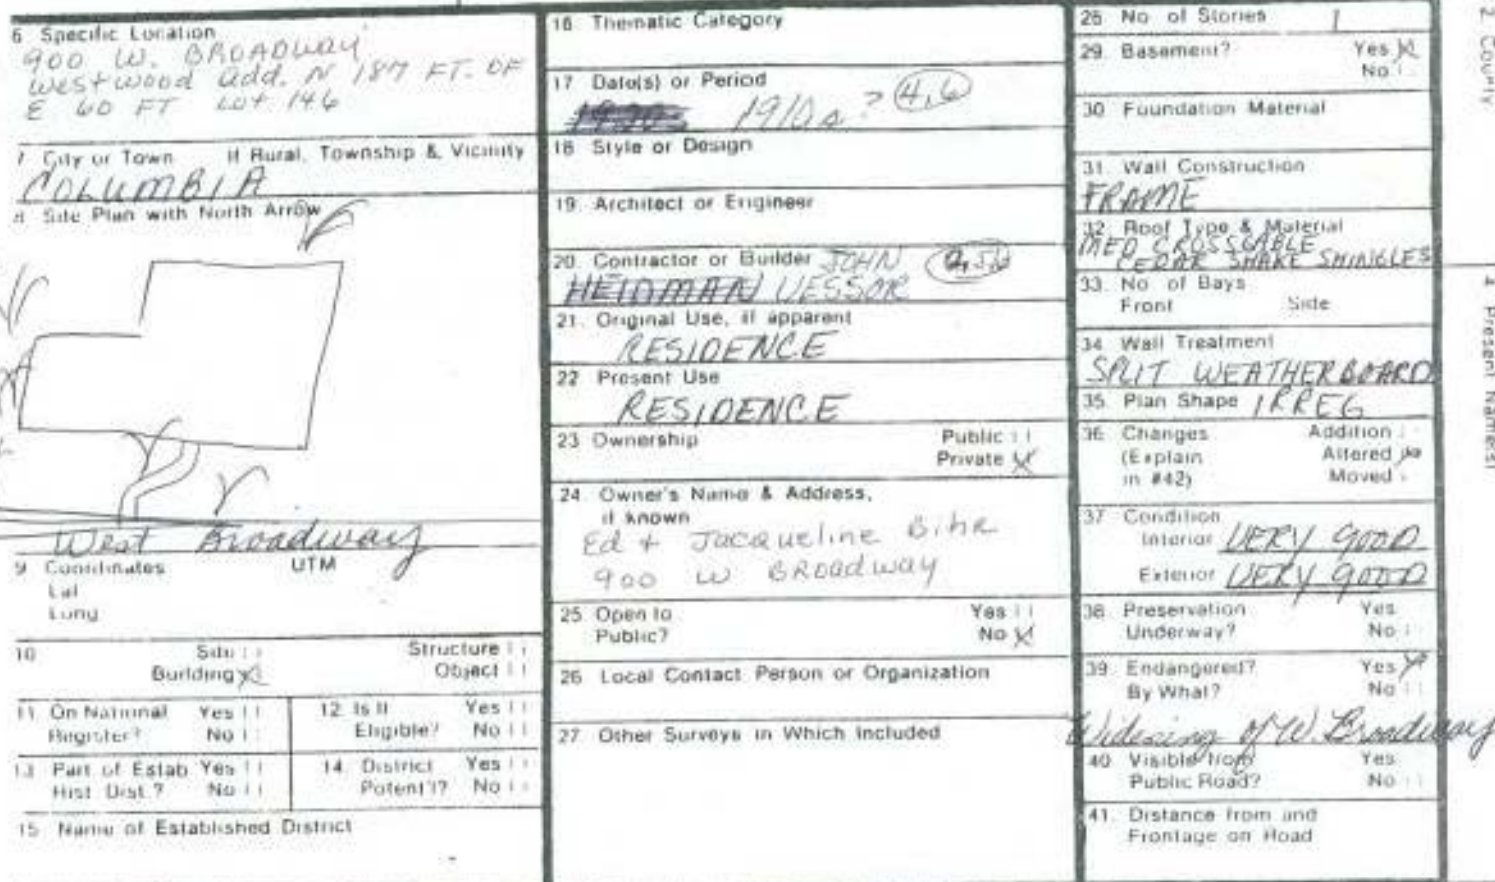 6 Specific Location
900 W. BROADWAY
Westwood Add. N 187 FT. OF
E 60 FT Lot 146
7 City or Town If Rural, Township & Vicinity
COLUMBIA
8 Site Plan with North Arrow
West Broadway
9 Coordinates UTM
Lat
Long
10 Site Structure
Building Object
11 On National Register? Yes No
12 Is It Eligible? Yes No
13 Part of Estab Hist Dist? Yes No
14 District Potent'l? Yes No
15 Name of Established District
16 Thematic Category
17 Date(s) or Period
1910s? 4,6
18 Style or Design
19 Architect or Engineer
20. Contractor or Builder JOHN
HEIDMAN VESSOR
21. Original Use, if apparent
RESIDENCE
22 Present Use
RESIDENCE
23 Ownership Public
Private X
24 Owner's Name & Address,
if known
Ed + Jacqueline Bihr
900 W BROADWAY
25 Open to Yes
Public? No X
26 Local Contact Person or Organization
27 Other Surveys in Which Included
28 No of Stories 1
29. Basement? Yes X
No
30 Foundation Material
31. Wall Construction
FRAME
32. Roof Type & Material
MED CROSSGABLE
CEDAR SHAKE SHINGLES
33. No of Bays
Front Side
34 Wall Treatment
SPLIT WEATHERBOARD
35. Plan Shape IRREG
36 Changes Addition
(Explain Altered
in #42) Moved
37 Condition
Interior VERY GOOD
Exterior VERY GOOD
38. Preservation Yes
Underway? No
39. Endangered? Yes X
By What? No
Widening of W. Broadway
40 Visible from Yes
Public Road? No
41. Distance from and
Frontage on Road
2 County
4 Present Name(s)